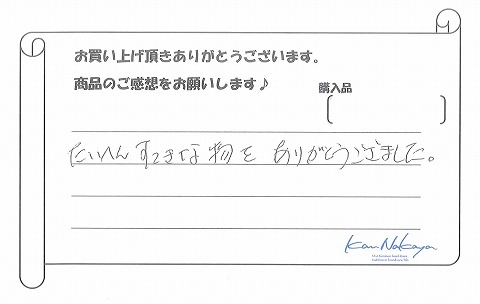 お買い上げ頂きありがとうございます。
商品のご感想をお願いします♪
購入品
たいへんすてきな物を ありがとうございました。
Kan Nakaya